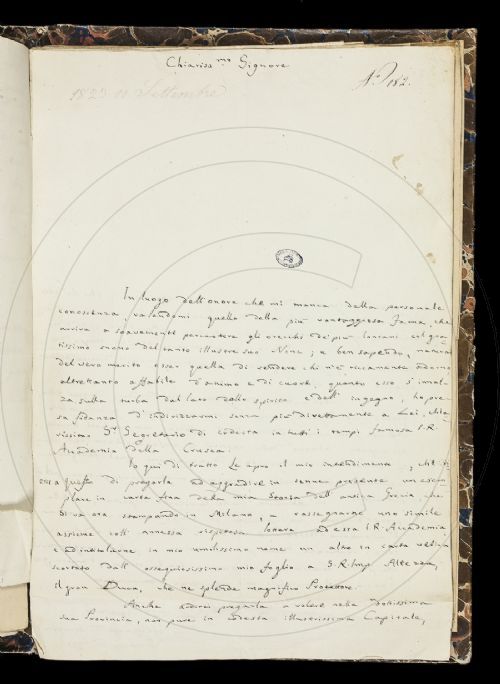 Chiariss.mo Signore
N.o 182.
1823 10 Settembre
In luogo dell'onore che mi manca della personale
conoscenza, valendomi quella della più vantaggiosa fama, che
arriva a soavemente percuotere gli orecchi de' più lontani col gra
tissimo suono del tanto illustre suo Nome; e ben sapendo, natura
del vero merito esser quella di rendere chi n'è riccamente adorno
altrettanto affabile d'animo e di cuore, quanto esso s'innal
za sulla turba dal lato dello spirito e dell'ingegno, ho pre
sa fidanza d'indirizzarmi senza più direttamente a Lei, chia
rissimo Sr. Segretario di codesta in tutti i tempi famosa I. R.
Accademia della Crusca.
Io qui di tratto Le apro il mio intendimento, ch'è
questo di pregarla ad aggradire in tenue presente un esem
plare in carta fina della mia Storia dell'antica Grecia, che
si va ora stampando in Milano, a rassegnarne uno simile
assieme coll'annessa rispettosa lettera ad essa I. R. Accademia,
e ad intitolarne in mio umilissimo nome un altro in carta velina
scortato dall'ossequiosissimo mio foglio a S. R. Imp. Altezza,
il gran Duca, che ne splende magnifico Protettore.
Anche oserei pregarla a volere nella dottissima
sua Provincia, non pure in codesta illustrissima Capitale,